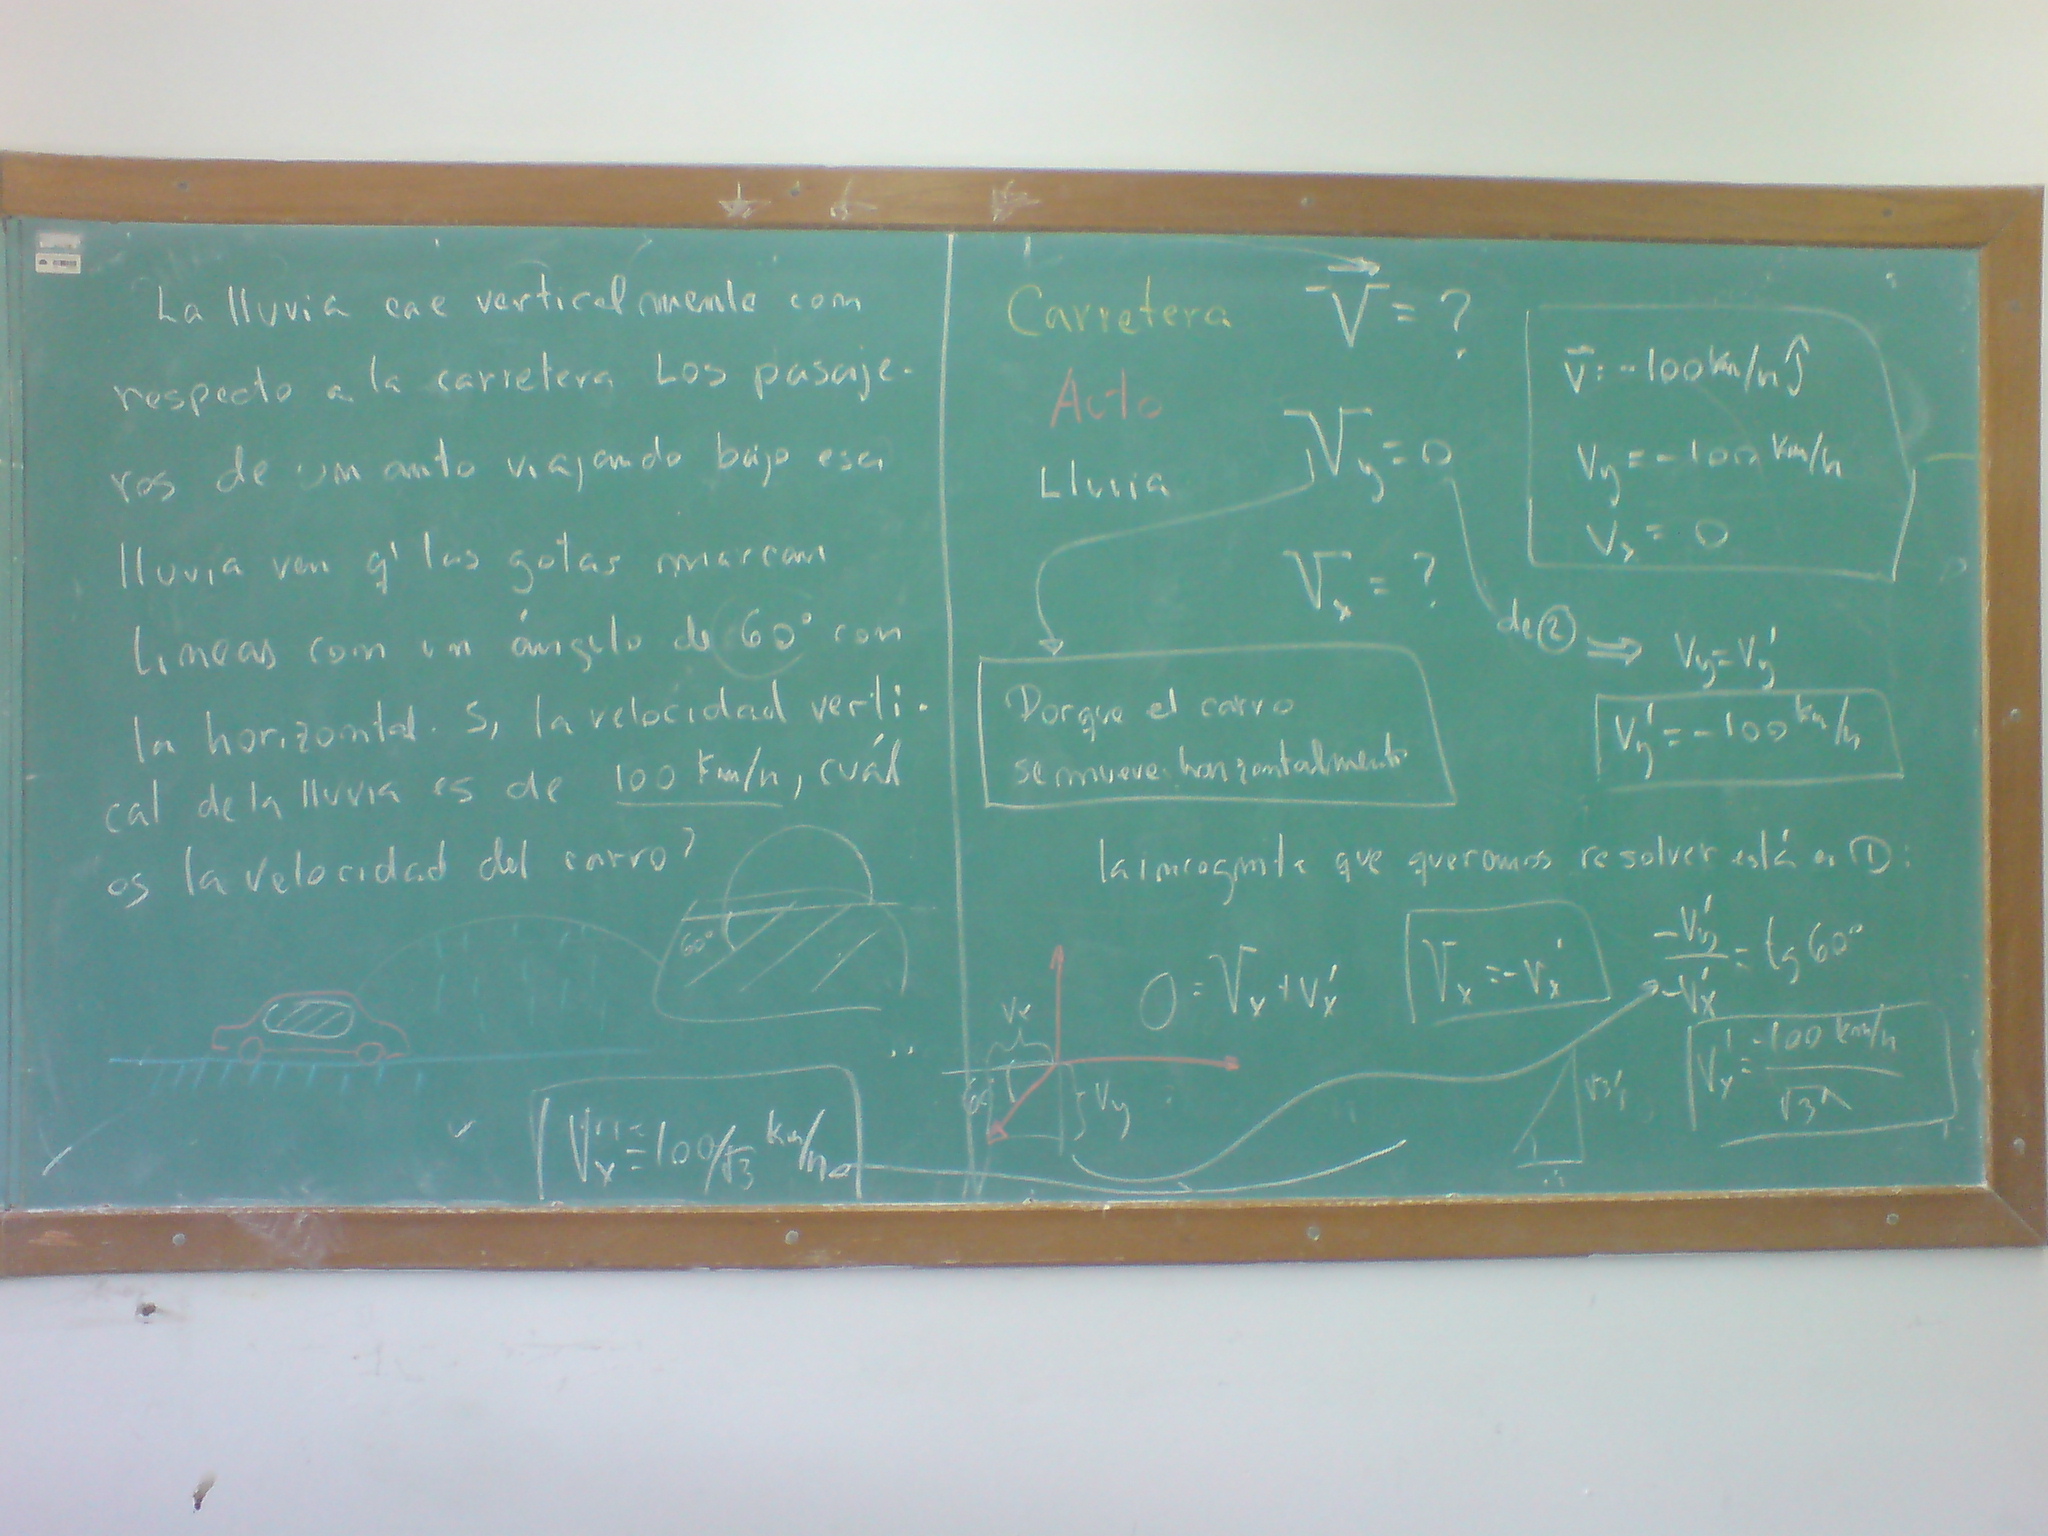 La lluvia cae verticalmente con
respecto a la carretera Los pasaje-
ros de un auto viajando bajo esa
lluvia ven q' las gotas marcan
Lineas con un ángulo de 60° con
la horizontal. Si la velocidad verti-
cal de la lluvia es de 100 km/h, cuál
es la velocidad del carro?
60°
Vx = 100/√3 km/h
Carretera
Auto
Lluvia
V = ?
Vy = 0
Vx = ?
v: -100 km/h ĵ
vy = -100 km/h
vx = 0
de ② ⇒ vy = vy'
vy' = -100 km/h
Porque el carro
se mueve horizontalmente
la incognita que queremos resolver está en ①:
0 = Vx + vx'
Vx = -vx'
-vy'/-vx' = tg 60°
vx' = -100 km/h / √3
Vx
Vy